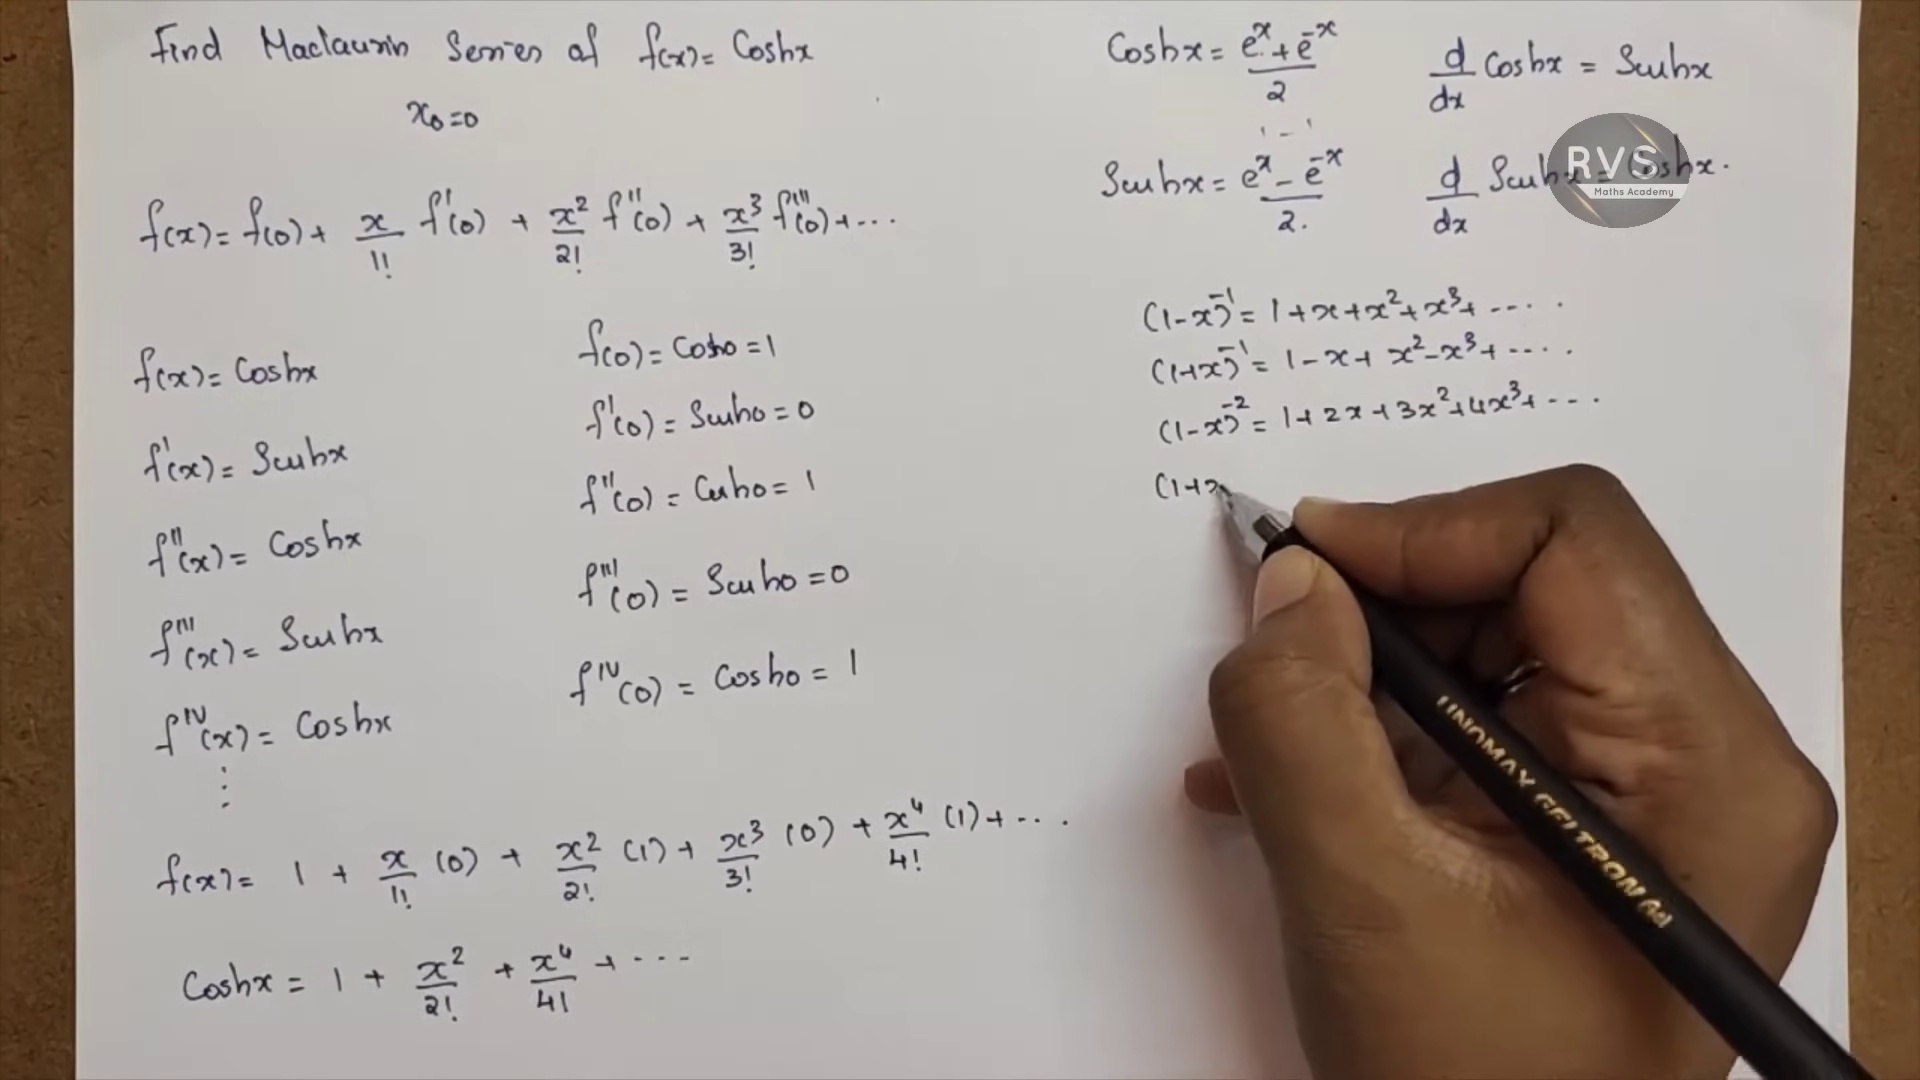 Find Maclaurin Series of f(x) = Coshx
x₀=0
f(x) = f(0) + x/1! f'(0) + x²/2! f''(0) + x³/3! f'''(0) + ...
f(x) = Coshx
f'(x) = Sinhx
f''(x) = Coshx
f'''(x) = Sinhx
f^IV(x) = Coshx
⋮
f(0) = Cosh0 = 1
f'(0) = Sinh0 = 0
f''(0) = Cosh0 = 1
f'''(0) = Sinh0 = 0
f^IV(0) = Cosh0 = 1
f(x) = 1 + x/1! (0) + x²/2! (1) + x³/3! (0) + x⁴/4! (1) + ...
Coshx = 1 + x²/2! + x⁴/4! + ...
Coshx = (e^x + e^-x)/2
d/dx Coshx = Sinhx
Sinhx = (e^x - e^-x)/2.
d/dx Sinhx = Coshx.
RVS
Maths Academy
(1-x)^-1 = 1 + x + x² + x³ + ....
(1+x)^-1 = 1 - x + x² - x³ + ....
(1-x)^-2 = 1 + 2x + 3x² + 4x³ + ...
(1+x
UNOMAX GELTRON